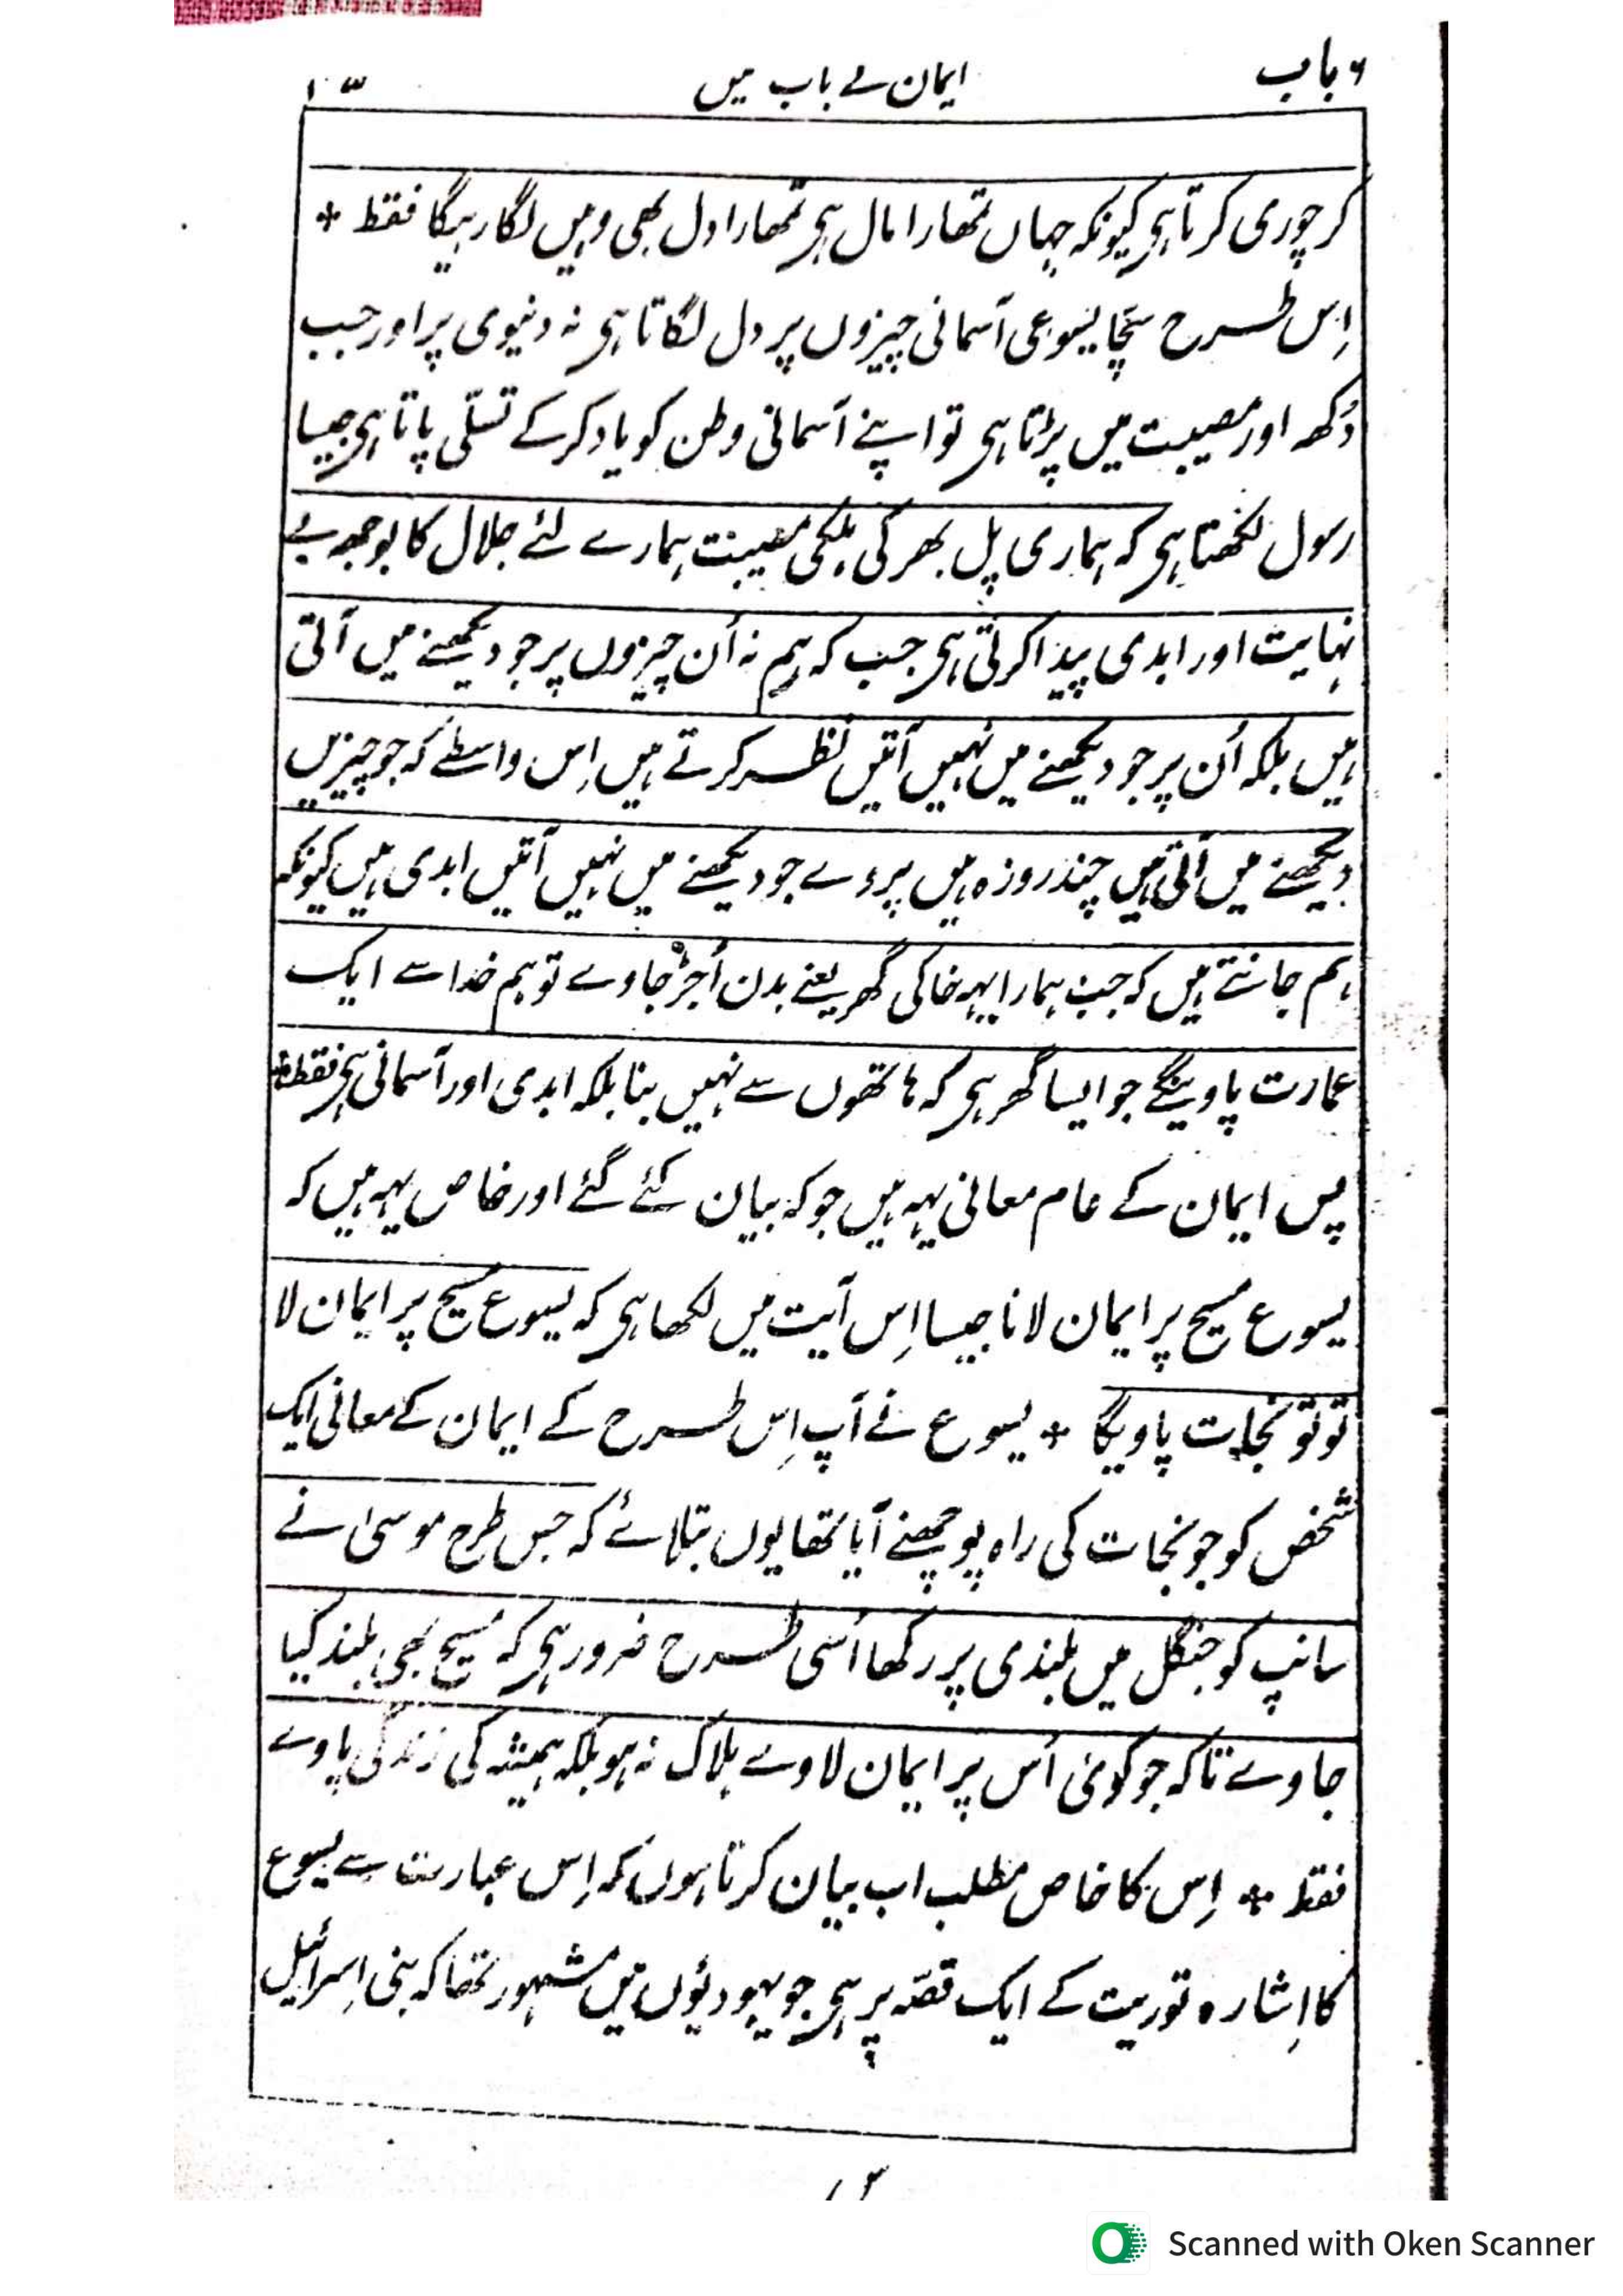 ۶ باب
ایمان کے باب میں
۱۰۳
کر چوری کرتا ہی کیونکہ جہاں تمھارا مال ہی تمھارا دل بھی وہیں لگا رہیگا فقط *
اِس طرح سچّا یسوعی آسمانی چیزوں پر دل لگاتا ہی نہ دنیوی پر اور جب
دُکھ اور مصیبت میں پڑتا ہی تو اپنے آسمانی وطن کو یاد کر کے تسلّی پاتا ہی جیسا
رسول لکھتا ہی کہ ہماری پل بھر کی ہلکی مصیبت ہمارے لئے جلال کا بوجھ بے
نہایت اور ابدی پیدا کرتی ہی جب کہ ہم نہ اُن چیزوں پر جو دیکھنے میں آتی
ہیں بلکہ اُن پر جو دیکھنے میں نہیں آتیں نظر کرتے ہیں اِس واسطے کہ جو چیزیں
دیکھنے میں آتی ہیں چند روزہ ہیں پر وے جو دیکھنے میں نہیں آتیں ابدی ہیں کیونکہ
ہم جانتے ہیں کہ جب ہمارا یہہ خاکی گھر یعنے بدن اُجڑ جاوے تو ہم خدا سے ایک
عمارت پاوینگے جو ایسا گھر ہی کہ ہاتھوں سے نہیں بنا بلکہ ابدی اور آسمانی ہی فقط *
پس ایمان کے عام معانی یہہ ہیں جو کہ بیان کئے گئے اور خاص یہہ ہیں کہ
یسوع مسیح پر ایمان لانا جیسا اِس آیت میں لکھا ہی کہ یسوع مسیح پر ایمان لا
تو تو نجات پاویگا * یسوع نے آپ اِس طرح کے ایمان کے معانی ایک
شخص کو جو نجات کی راہ پوچھنے آیا تھا یوں بتلائے کہ جس طرح موسیٰ نے
سانپ کو جنگل میں بلندی پر رکھا اُسی طرح ضرور ہی کہ مسیح بھی بلند کیا
جاوے تاکہ جو کوئی اُس پر ایمان لاوے ہلاک نہ ہو بلکہ ہمیشہ کی زندگی پاوے
فقط * اِس کا خاص مطلب اب بیان کرتا ہوں کہ اِس عبارت سے یسوع
کا اِشارہ توریت کے ایک قصّہ پر ہی جو یہودیؤں میں مشہور تھا کہ بنی اِسرائیل
Scanned with Oken Scanner